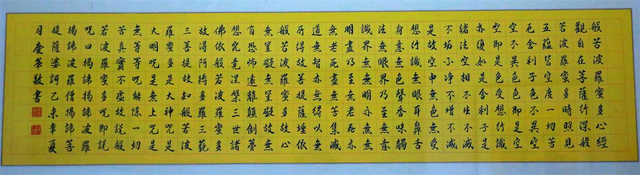 般若波羅蜜多心經
觀自在菩薩行深般
若波羅蜜多時照見
五蘊皆空度一切苦
厄舍利子色不異空
空不異色色即是空
空即是色受想行識
亦復如是舍利子是
諸法空相不生不滅
不垢不淨不增不減
是故空中無色無受
想行識無眼耳鼻舌
身意無色聲香味觸
法無眼界乃至無意
識界無無明亦無無
明盡乃至無老死亦
無老死盡無苦集滅
道無智亦無得以無
所得故菩提薩埵依
般若波羅蜜多故心
無罣礙無罣礙故無
有恐怖遠離顛倒夢
想究竟涅槃三世諸
佛依般若波羅蜜多
故得阿耨多羅三藐
三菩提故知般若波
羅蜜多是大神咒是
大明咒是無上咒是
無等等咒能除一切
苦真實不虛故說般
若波羅蜜多咒即說
咒曰揭諦揭諦波羅
揭諦波羅僧揭諦菩
提薩婆訶己未年夏
月慶敬書